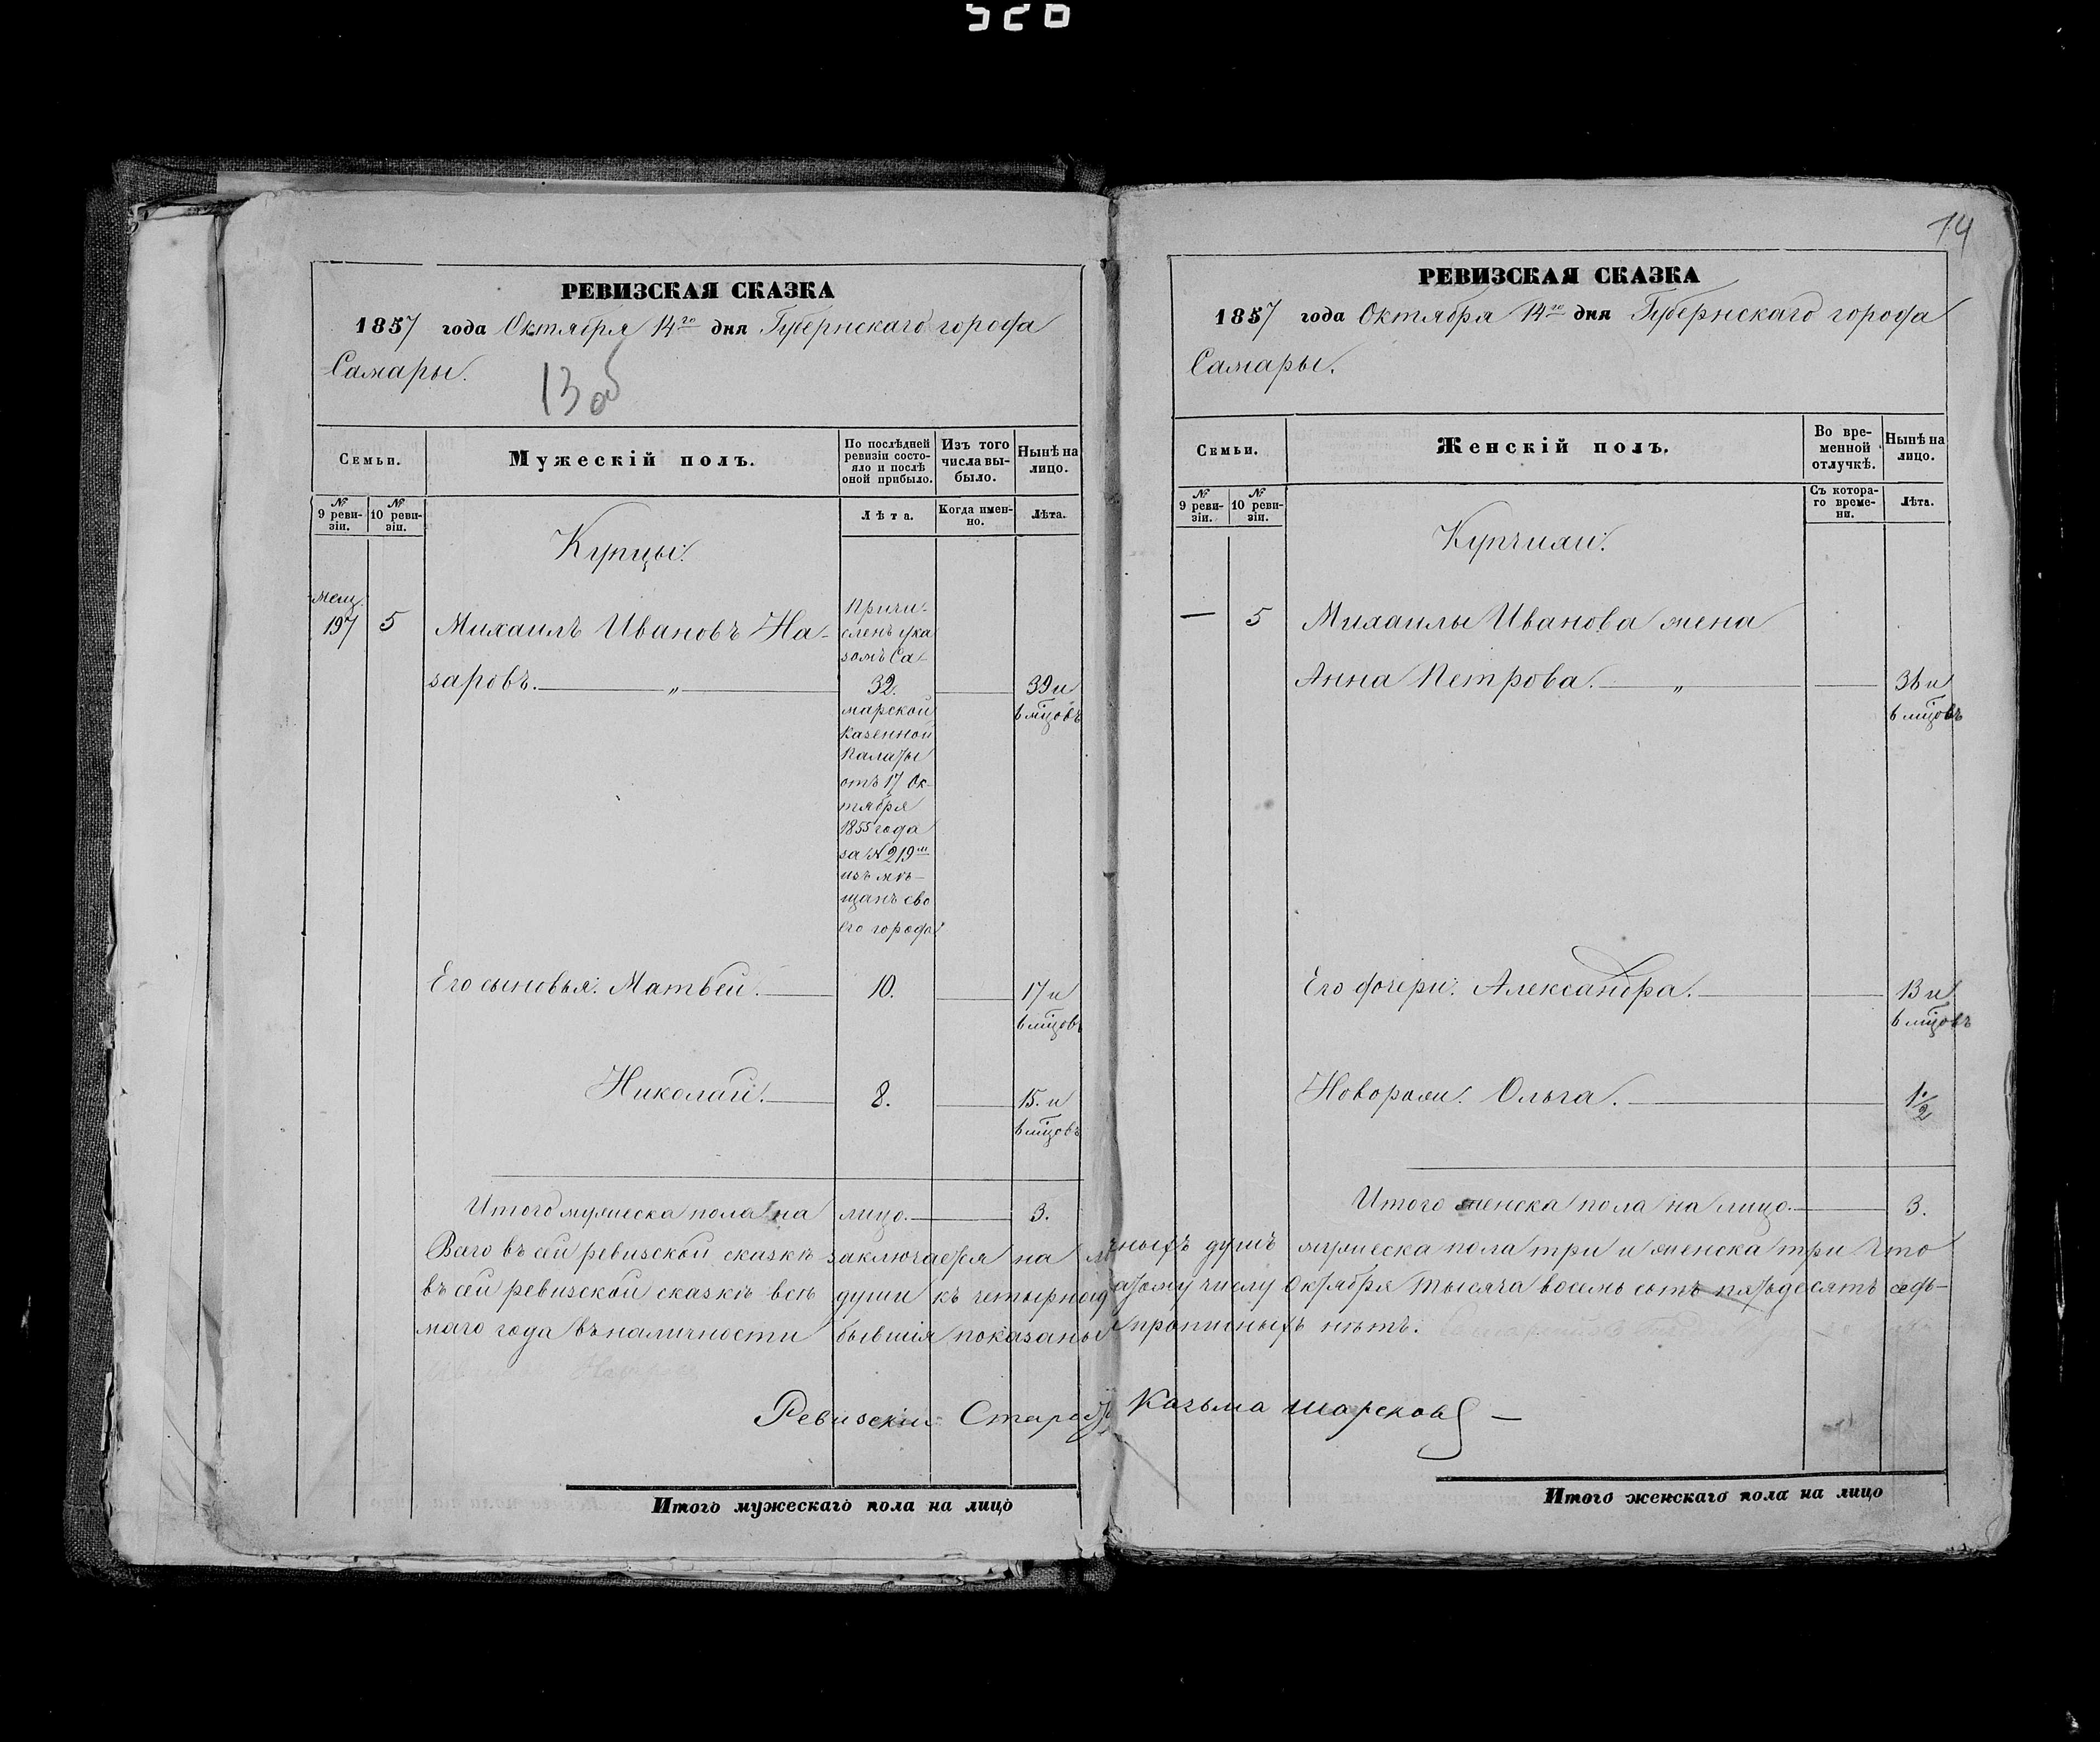 526
РЕВИЗСКАЯ СКАЗКА
1857 года Октября 14го дня Губернскаго города
Самары.
13 об
Семьи.
Мужескій полъ.
По послѣдней ревизіи состо-
яло и послѣ
оной прибыло.
Изъ того
числа вы-
было.
Нынѣ на
лицо.
№
9 реви-
зіи.
№
10 реви-
зіи.
Лѣта.
Когда имен-
но.
Лѣта.
Купцы:
мещ.
197
5
Михаилъ Ивановъ На-
заровъ. „
Причи-
сленъ ука
зомъ Са-
32.
марской
казенной
Палаты
отъ 17 Ок-
тября
1855 года
за №219м
изъ мѣ-
щанъ сво
его города
39 и
6 мѣцовъ
Его сыновья: Матвей.
10.
17 и
6 мѣцовъ
Николай.
8.
15. и
6 мѣцовъ
Итого мужеска пола на лицо. 3.
Итого мужескаго пола на лицо
14
РЕВИЗСКАЯ СКАЗКА
1857 года Октября 14го дня Губернскаго города
Самары.
Семьи.
Женскій полъ.
Во вре-
менной
отлучкѣ.
Нынѣ на
лицо.
№
9 реви-
зіи.
№
10 реви-
зіи.
Съ котора-
го време-
ни.
Лѣта.
Купчихи:
—
5
Михаилы Иванова жена
Анна Петрова. „
36 и
6 мѣцовъ
Его дочери: Александра.
13 и
6 мѣцовъ
Новорожд. Ольга.
1/2
Итого женска пола на лицо. 3.
Всего въ сей ревизской сказкѣ заключается на личныхъ душъ мужеска пола три и женска три что
въ сей ревизской сказкѣ всѣ души къ четырнадцатому числу Октября тысяча восемь сотъ пятьдесятъ седь-
маго года въ наличности бывшія показаны и прописныхъ нѣтъ.
Ревизскій Староста Козьма Шарсковъ —
Итого женскаго пола на лицо